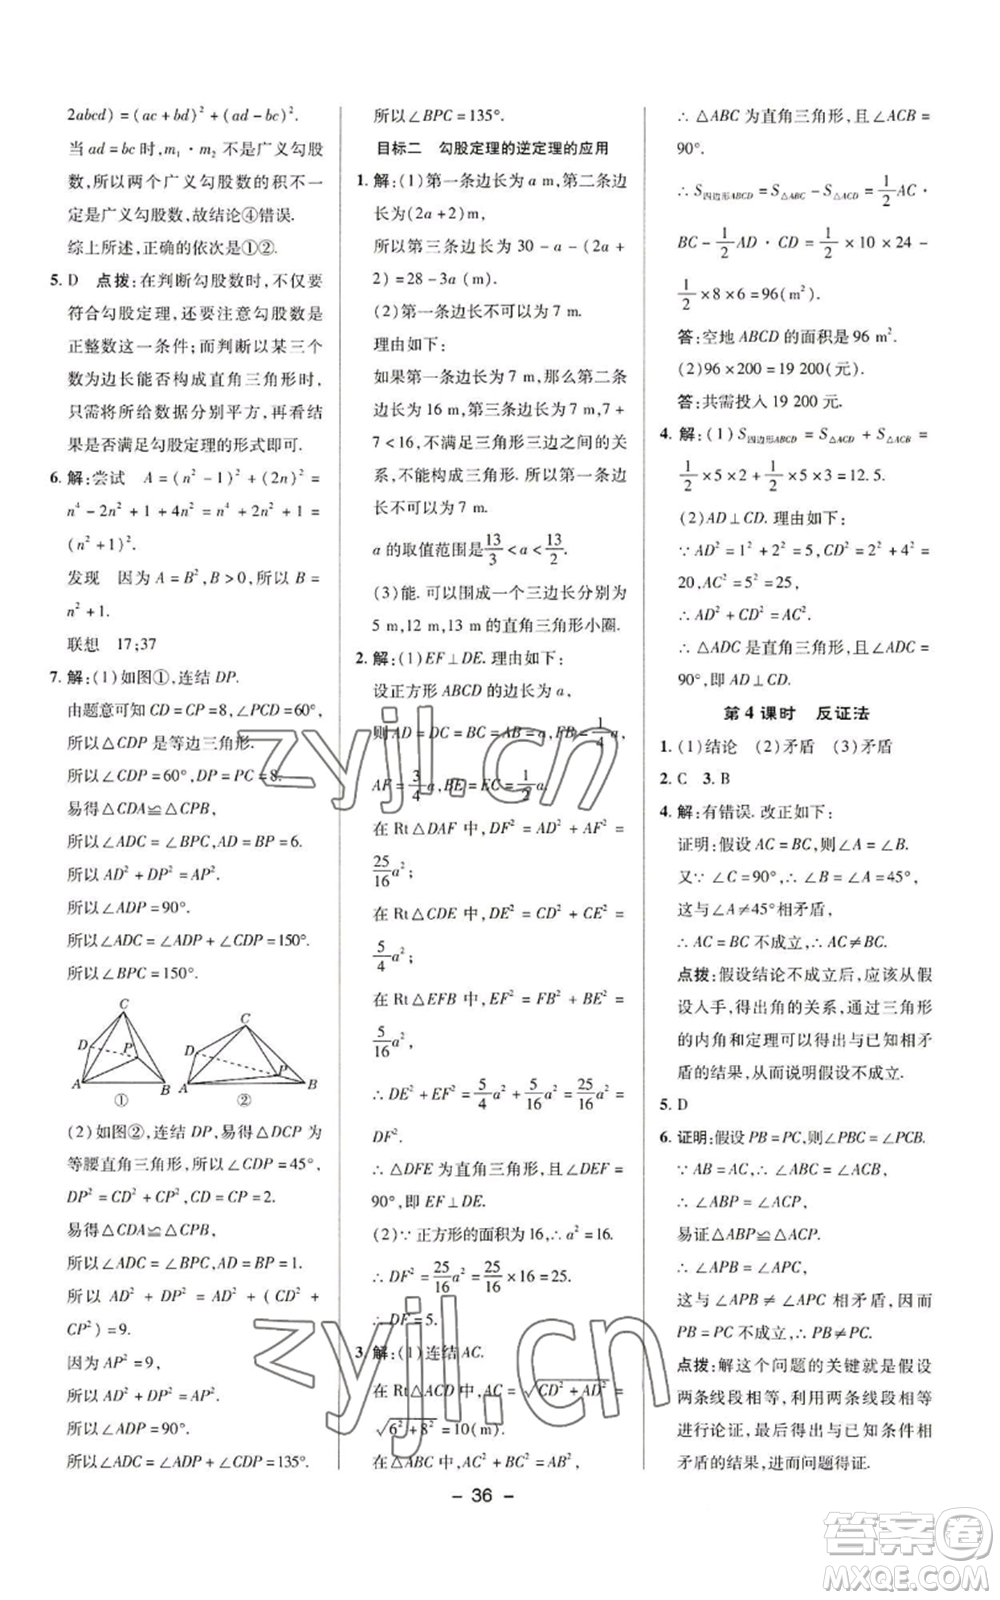 2abcd) = (ac + bd)² + (ad − bc)².
当 ad = bc 时, m₁ · m₂ 不是广义勾股
数, 所以两个广义勾股数的积不一
定是广义勾股数, 故结论④错误.
综上所述, 正确的依次是①②.
5. D 点拨: 在判断勾股数时, 不仅要
符合勾股定理, 还要注意勾股数是
正整数这一条件; 而判断以某三个
数为边长能否构成直角三角形时,
只需将所给数据分别平方, 再看结
果是否满足勾股定理的形式即可.
6. 解: 尝试 A = (n² − 1)² + (2n)² =
n⁴ − 2n² + 1 + 4n² = n⁴ + 2n² + 1 =
(n² + 1)².
发现 因为 A = B², B > 0, 所以 B =
n² + 1.
联想 17; 37
7. 解: (1) 如图①, 连结 DP.
由题意可知 CD = CP = 8, ∠PCD = 60°,
所以△CDP 是等边三角形.
所以∠CDP = 60°, DP = PC = 8.
易得△CDA≌△CPB,
所以∠ADC = ∠BPC, AD = BP = 6.
所以 AD² + DP² = AP².
所以∠ADP = 90°.
所以∠ADC = ∠ADP + ∠CDP = 150°.
所以∠BPC = 150°.
C D P A B ①
C D P A B ②
(2) 如图②, 连结 DP, 易得△DCP 为
等腰直角三角形, 所以∠CDP = 45°,
DP² = CD² + CP², CD = CP = 2.
易得△CDA≌△CPB,
所以∠ADC = ∠BPC, AD = BP = 1.
所以 AD² + DP² = AD² + (CD² +
CP²) = 9.
因为 AP² = 9,
所以 AD² + DP² = AP².
所以∠ADP = 90°.
所以∠ADC = ∠ADP + ∠CDP = 135°.
所以∠BPC = 135°.
目标二 勾股定理的逆定理的应用
1. 解: (1) 第一条边长为 a m, 第二条
边长为(2a + 2) m,
所以第三条边长为 30 − a − (2a +
2) = 28 − 3a (m).
(2) 第一条边长不可以为 7 m.
理由如下:
如果第一条边长为 7 m, 那么第二条
边长为 16 m, 第三条边长为 7 m, 7 +
7 < 16, 不满足三角形三边之间的关
系, 不能构成三角形. 所以第一条边
长不可以为 7 m.
a 的取值范围是 13/3 < a < 13/2.
(3) 能. 可以围成一个三边长分别为
5 m, 12 m, 13 m 的直角三角形小圈.
2. 解: (1) EF⊥DE. 理由如下:
设正方形 ABCD 的边长为 a,
则 AD = DC = BC = AB = a, FB = 1/4 a,
AF = 3/4 a, BE = EC = 1/2 a.
在 Rt△DAF 中, DF² = AD² + AF² =
25/16 a²;
在 Rt△CDE 中, DE² = CD² + CE² =
5/4 a²;
在 Rt△EFB 中, EF² = FB² + BE² =
5/16 a²,
∴ DE² + EF² = 5/4 a² + 5/16 a² = 25/16 a² =
DF².
∴ △DFE 为直角三角形, 且∠DEF =
90°, 即 EF⊥DE.
(2) ∵ 正方形的面积为 16, ∴ a² = 16.
∴ DF² = 25/16 a² = 25/16 × 16 = 25.
∴ DF = 5.
3. 解: (1) 连结 AC.
在 Rt△ACD 中, AC = √(CD² + AD²) =
√(6² + 8²) = 10(m).
在△ABC 中, AC² + BC² = AB²,
∴ △ABC 为直角三角形, 且∠ACB =
90°.
∴ S四边形ABCD = S△ABC − S△ACD = 1/2 AC ·
BC − 1/2 AD · CD = 1/2 × 10 × 24 −
1/2 × 8 × 6 = 96(m²).
答: 空地 ABCD 的面积是 96 m².
(2) 96 × 200 = 19 200(元).
答: 共需投入 19 200 元.
4. 解: (1) S四边形ABCD = S△ACD + S△ACB =
1/2 × 5 × 2 + 1/2 × 5 × 3 = 12.5.
(2) AD⊥CD. 理由如下:
∵ AD² = 1² + 2² = 5, CD² = 2² + 4² =
20, AC² = 5² = 25,
∴ AD² + CD² = AC².
∴ △ADC 是直角三角形, ∠ADC =
90°, 即 AD⊥CD.
第 4 课时 反证法
1. (1) 结论 (2) 矛盾 (3) 矛盾
2. C 3. B
4. 解: 有错误. 改正如下:
证明: 假设 AC = BC, 则∠A = ∠B.
又∵ ∠C = 90°, ∴ ∠A = ∠B = 45°,
这与∠A≠45°相矛盾,
∴ AC = BC 不成立, ∴ AC≠BC.
点拨: 假设结论不成立后, 应该从假
设入手, 得出角的关系, 通过三角形
的内角和定理可以得出与已知相矛
盾的结果, 从而说明假设不成立.
5. D
6. 证明: 假设 PB = PC, 则∠PBC = ∠PCB.
∵ AB = AC, ∴ ∠ABC = ∠ACB.
∴ ∠ABP = ∠ACP.
易证△ABP≌△ACP,
∴ ∠APB = ∠APC.
这与∠APB≠∠APC 相矛盾, 因而
PB = PC 不成立, ∴ PB≠PC.
点拨: 解这个问题的关键就是假设
两条线段相等, 利用两条线段相等
进行论证, 最后得出与已知条件相
矛盾的结果, 进而问题得证.
– 36 –
zyjl.cn
zyjl.cn
答案圈
MXQE.COM